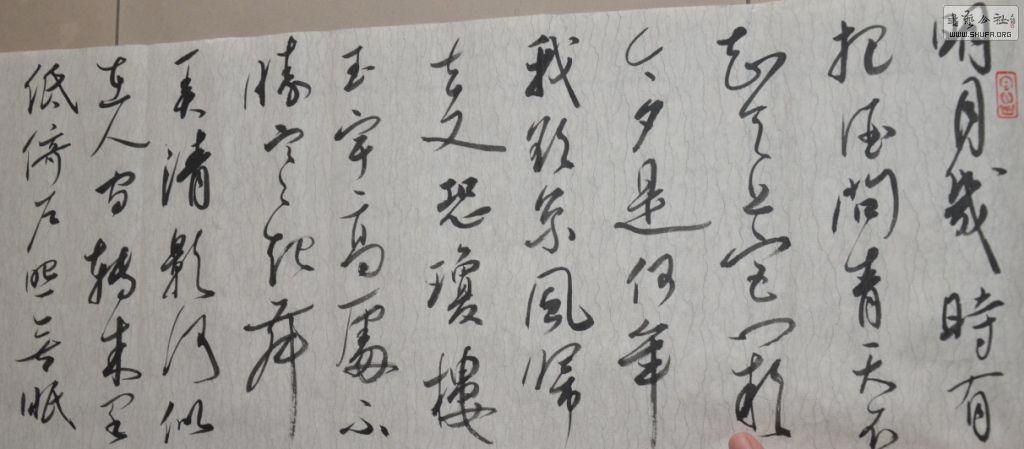 明月幾時有
把酒問青天不
知天上宮闕
今夕是何年
我欲乘風歸
去又恐瓊樓
玉宇高處不
勝寒起舞
弄清影何似
在人間轉朱閣
低綺戶照無眠
書藝公社
WWW.SHUFA.ORG